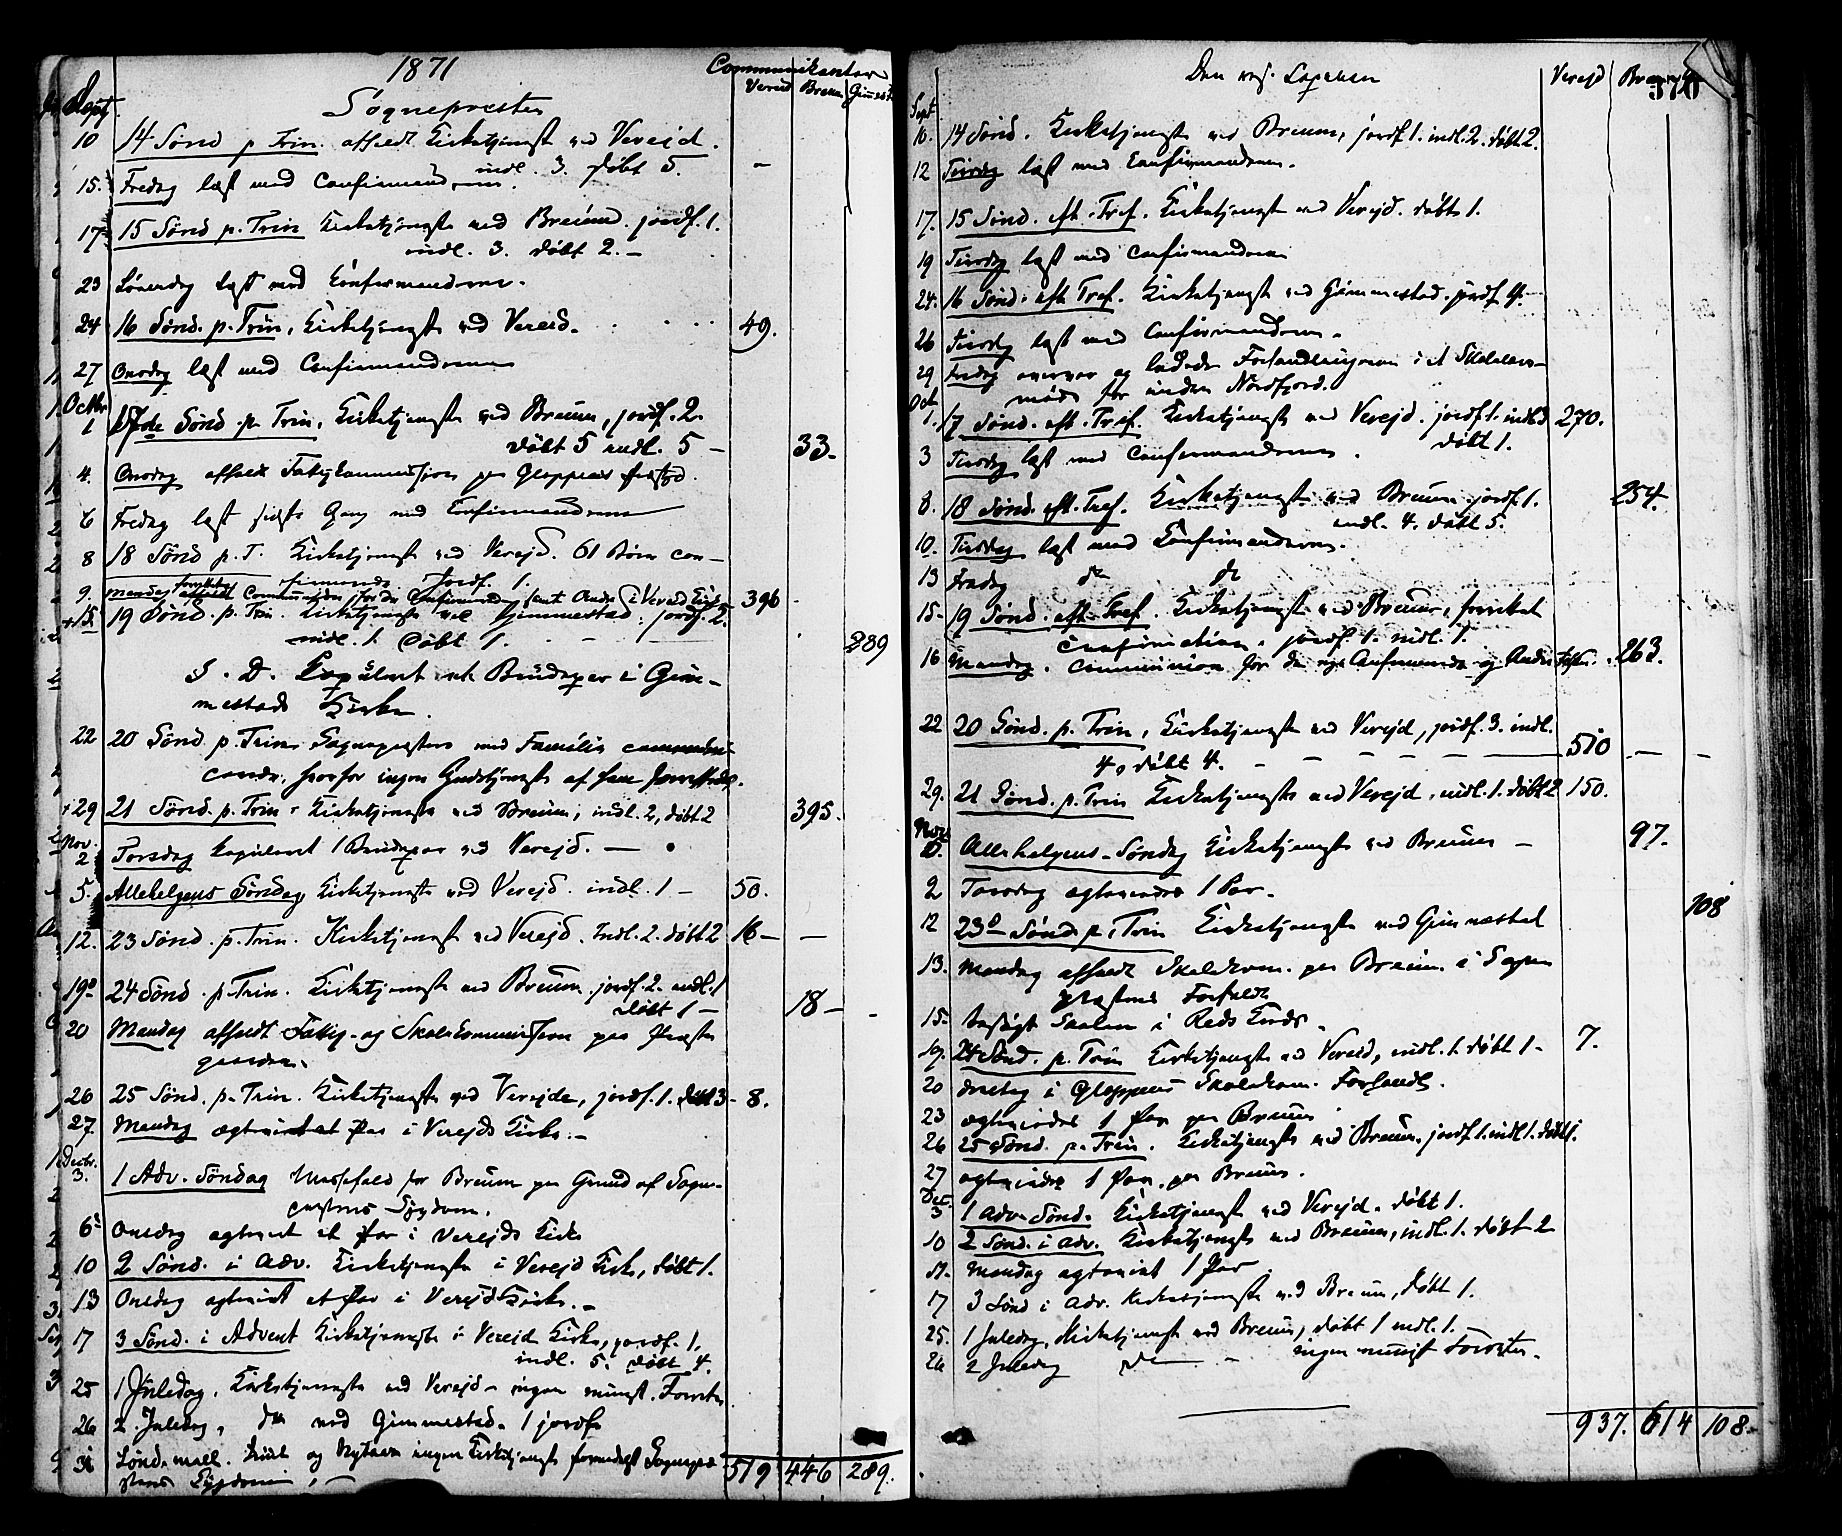 1871
Communikanter
Sognepresten
Vereid Breum Gimmestad
Sept.
10 14 Sønd p Trin. afholdt Kirketjeneste ved Vereid.
indl. 3. døbt 5. -
15. Fredag læst med Confirmanderne.
17. 15 Sønd p. Trin Kirketjeneste ved Breum. jordf. 1.
indl. 3. døbt 2. -
23 Löverdag læst med Confirmanderne.
24 16 Sønd. p. Trin, Kirketjeneste ved Vereid. 49.
27 Onsdag læst med Confirmanderne
Octbr.
1 17de Sønd p. Trin. Kirketjeneste ved Breum, jordf. 2.
døbt 5 indl. 5 - 33.
4. Onsdag afholdt Fattigkommission paa Gloppens
6 Fredag læst sidste Gang med Confirmanderne
8 18 Sønd p. T. Kirketjeneste ved Vereid. 61 Børn con-
firmerede. Jordf. 1.
9. Mandag Communion for de Confirmerede samt Andre i Vereid Kirke 396
15. 19 Sønd. p. Trin. Kirketjeneste ved Gimmestad. jordf. 2.
indl. 1. Døbt 1. 289
S. D. Copuleret et Brudepar i Gim-
mestads Kirke.
22 20 Sønd p. Trin. Sognepresten med Familie communi-
cerede, hvorfor ingen Gudstjeneste af ham forrettedes.
29 21 Sønd. p. Trin. Kirketjeneste ved Breum, indl. 2, døbt 2 395.
Nov.
2 Torsdag kopuleret 1 Brudepar ved Vereid. -
5. Allehelgens Søndag Kirketjeneste ved Vereid. indl. 1 - 50.
12. 23 Sønd. p. Trin. Kirketjeneste ved Vereid. Indl. 2. døbt 2 16 - -
19. 24 Sønd. p. Trin. Kirketjeneste ved Breum. jordf. 2. indl. 1
døbt 1 - 18 -
20 Mandag afholdt Fattig- og Skolekommission paa Præste
gaarden.
26 25 Sønd. p. Trin. Kirketjeneste ved Vereide, jordf. 1. døbt 3 - 8.
27. Mandag ægteviet et Par i Vereids Kirke. -
Decbr.
3. 1 Adv. Søndag Messefald for Breum paa Grund af Sogne-
prestens Sygdom.
6 Onsdag ægteviet et Par i Vereids Kirke
10 2 Sønd. i Adv. Kirketjeneste i Vereid Kirke, døbt 1.
13 Onsdag ægteviet et Par i Vereid Kirke. -
17 3 Sønd. i Advent Kirketjeneste i Vereid Kirke, jordf. 1,
indl. 5. døbt 4.
25 1 Juledag. Kirketjeneste ved Vereid - ingen minist. Forretn
26 2. Juledag, do ved Gimmestad. 1 jordf.
31 Sønd. mell. Juul og Nytaar ingen Kirketjeneste formedelst Sognepræ-
stens Sygdom. -
519 446 289.
Den res. Capellan
Vereid Breum
370
Sept
10. 14 Sønd. Kirketjeneste ved Breum, jordf. 1. indl. 2. døbt 2.
12 Tirsdag læst med Confirmanderne.
17. 15 Sønd. eft. Tref. Kirketjeneste ved Vereid. døbt 1.
19 Tirsdag læst med Confirmanderne
24. 16 Sønd. eft Tref. Kirketjeneste ved Gimmestad. jordf 4.
26 Tirsdag læst med Confirmanderne.
29 Fredag overvar og ledede Forhandlingerne i et Skolelærer-
møde for indre Nordfjord.
Oct.
1. 17 Sønd. eft. Tref. Kirketjeneste ved Vereid. jordf. 1. indl. 3 270.
døbt 1.
3 Tirsdag læst med Confirmanderne.
8. 18 Sønd. eft. Tref. Kirketjeneste ved Breum jordf. 1. 254.
indl. 4. døbt 5.
10. Tirsdag læst med Confirmanderne.
13 Fredag do do
15 - 19 Sønd. eft Tref. Kirketjeneste ved Breum, forrettet
Confirmation, jordf. 1. indl. 1.
16 Mandag. Communion for de nye Confirmerede og Andre 263.
22 20 Sønd. p. Trin, Kirketjeneste ved Vereid, jordf. 3. indl.
4, døbt 4. - - - - - 510 - -
29. 21 Sønd. p. Trin Kirketjeneste ved Vereid, indl. 1. døbt 2 150.
Nov.
5. Allehelgens-Søndag Kirketjeneste ved Breum - 97.
2 Torsdag ægteviede 1 Par. 108
12 23d Sønd p. Trin Kirketjeneste ved Gimmestad
13. Mandag afholdt Skolekom. paa Breum i Sogne
præstens Forfald
15. besøgt Skolen i Reds Kreds.
19. 24 Sønd. p. Trin Kirketjeneste ved Vereid, indl. 1. døbt 1 - 7.
20 deeltog i Gloppens Skolekom. Forhandl.
23 ægteviede 1 Par paa Breum
26 25 Sønd. p. Trin. Kirketjeneste ved Breum, jordf 1. indl 1. døbt 1.
27 ægteviede 1 Par paa Breum.
Dec.
3 1 Adv. Sønd. Kirketjeneste ved Vereid. døbt 1.
10 2 Sønd. i Adv. Kirketjeneste ved Breum, indl. 1. døbt 2
11. Mandag ægteviet 1 Par
17 3 Sønd i Adv. Kirketjeneste ved Breum, døbt 1.
25. 1 Juledag, Kirketjeneste ved Breum, døbt 1 indl. 1. -
26 2 Juledag do - ingen minist Forretn.
937. 614 108.